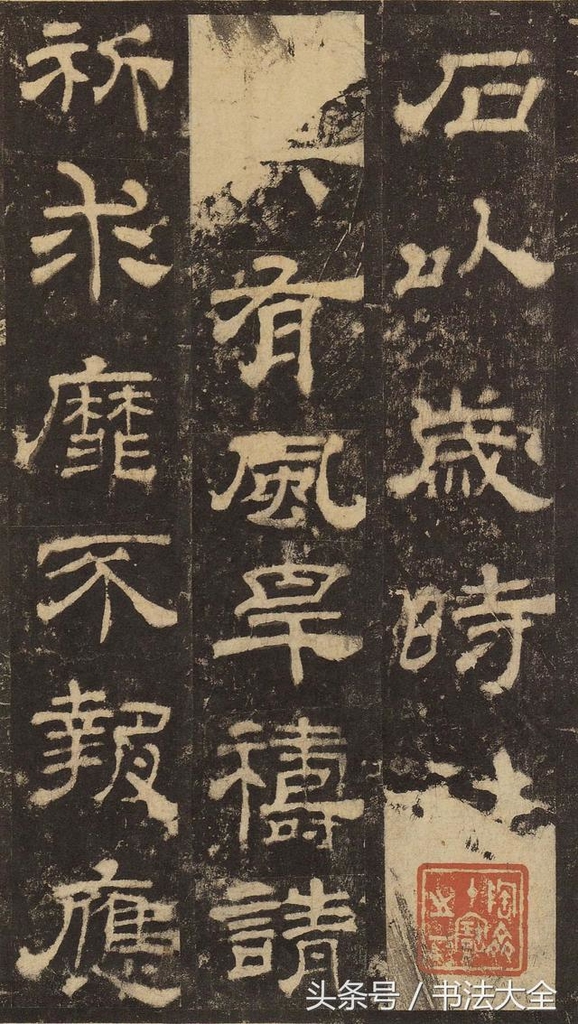 石以歲時
有風旱禱請
祈求靡不報應
头条号 / 书法大全